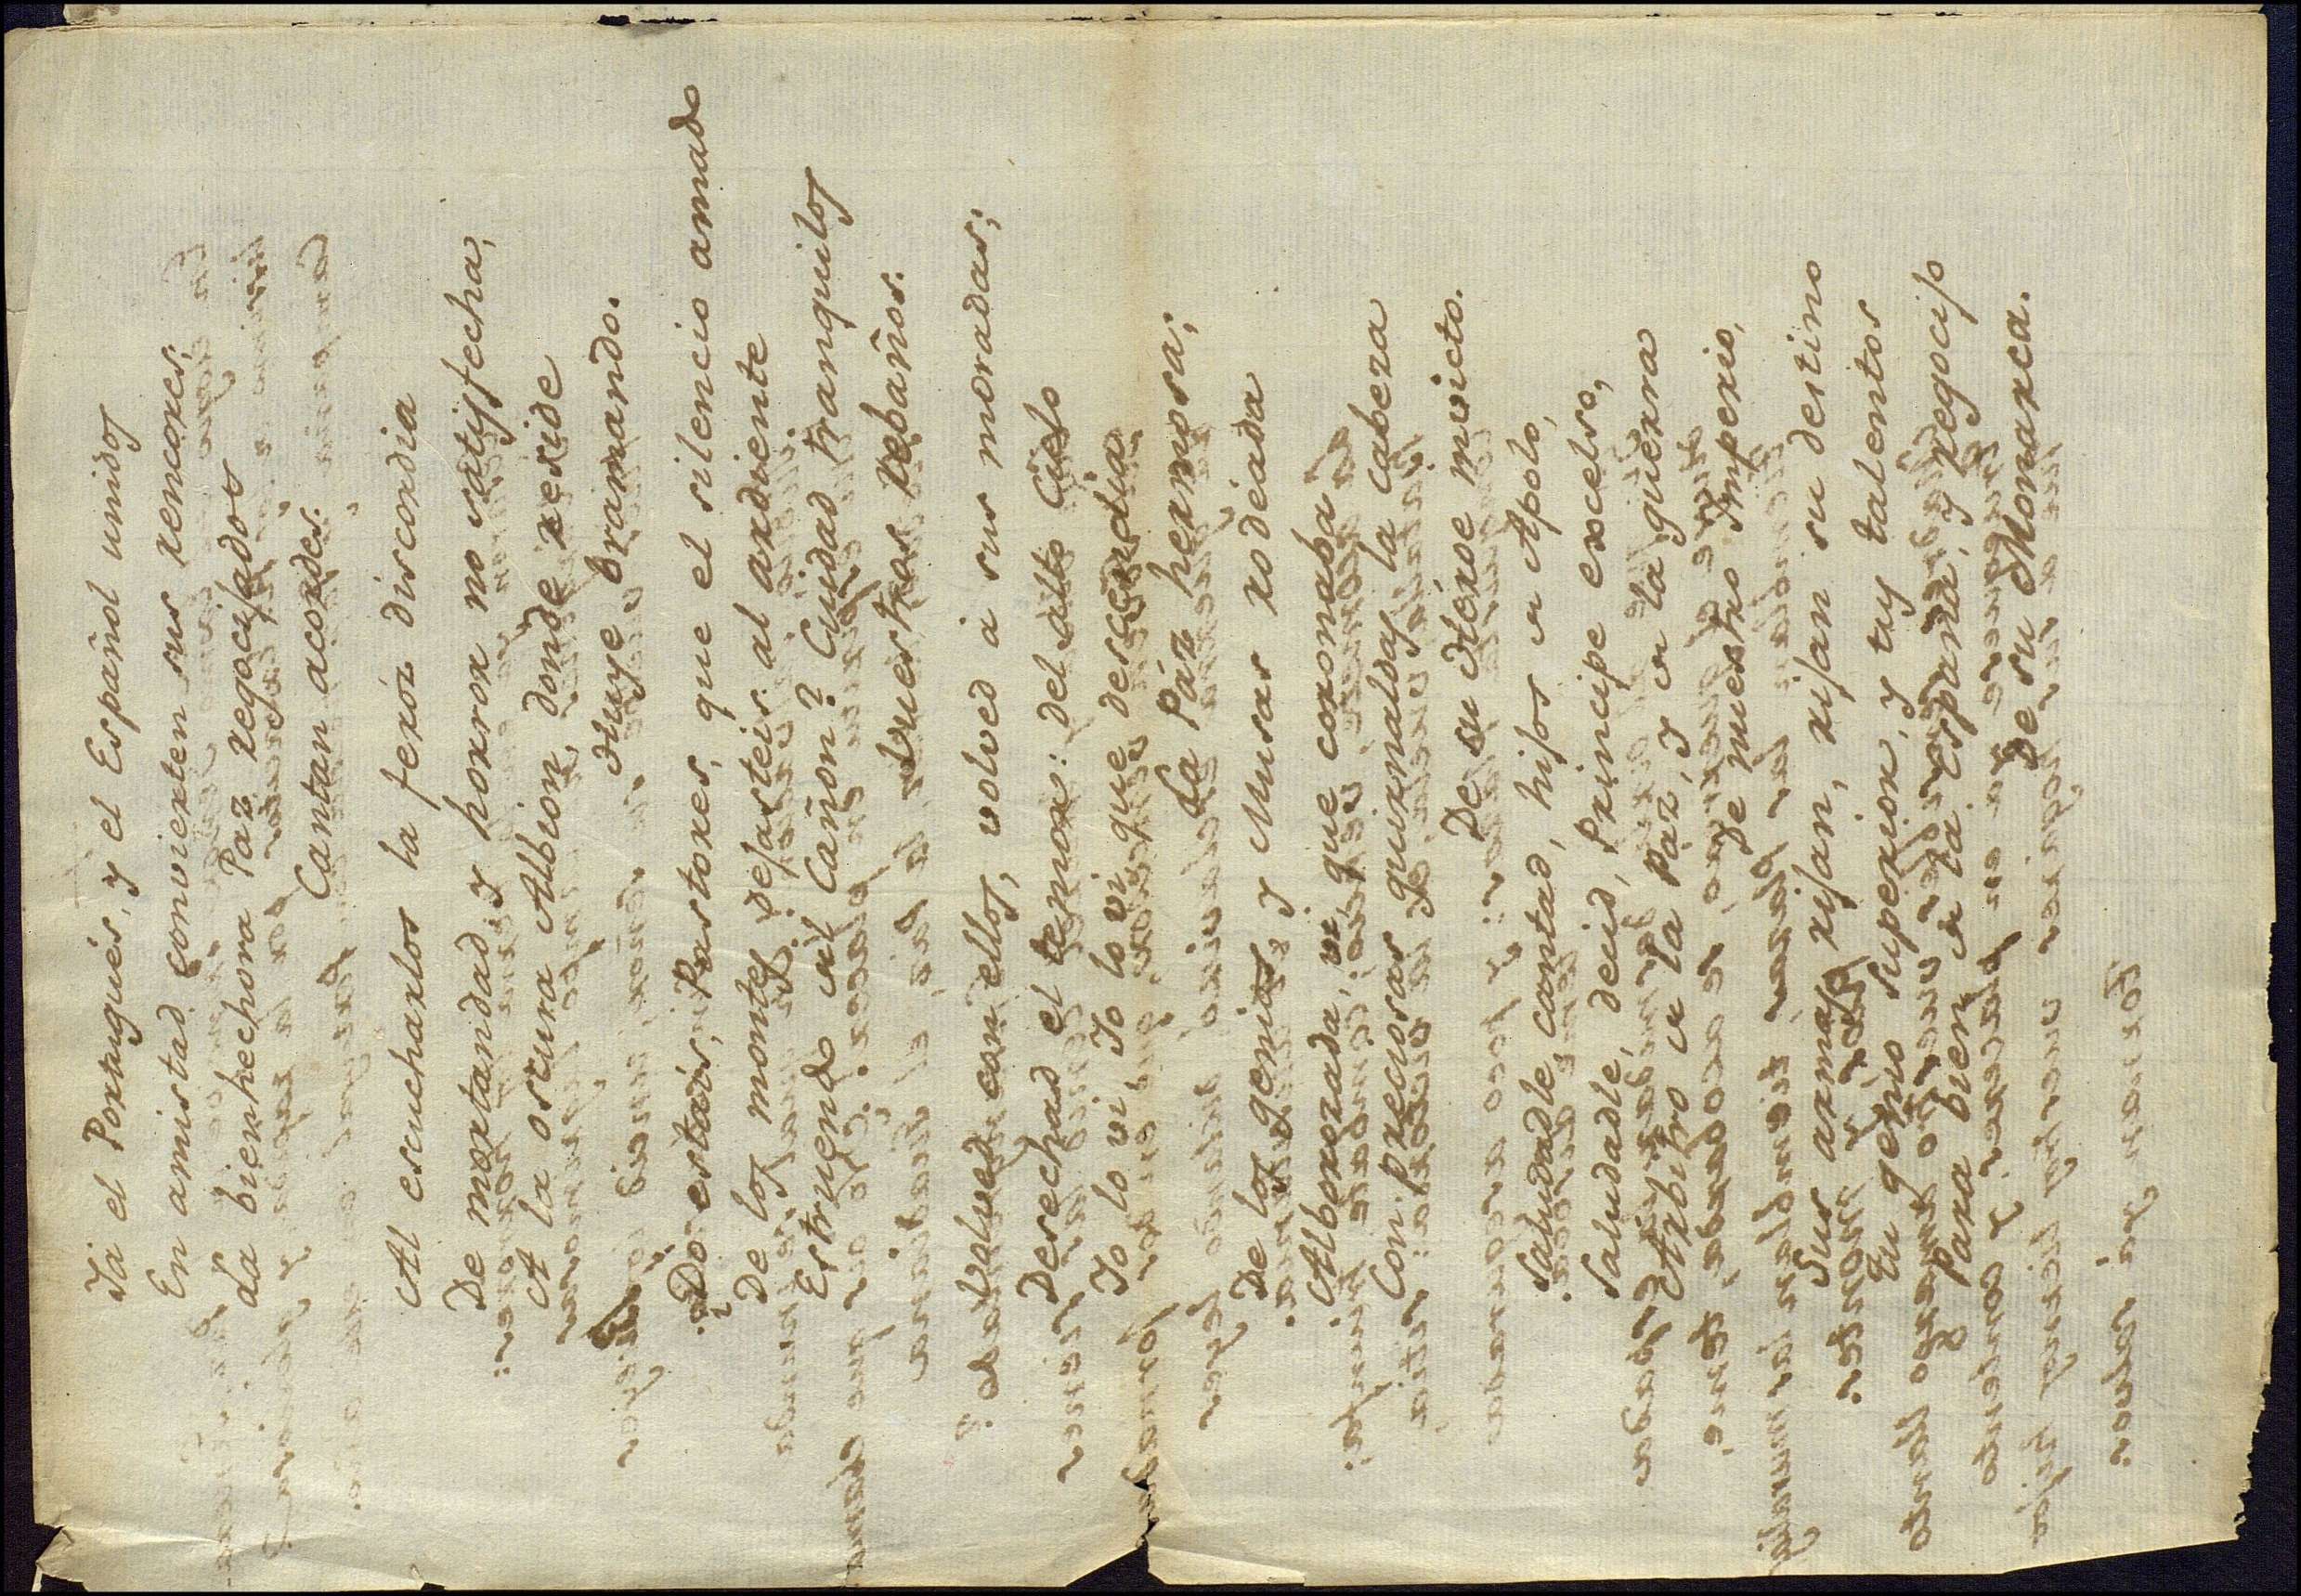 Ya el Portugués, y el Español unidos
En amistad convierten sus rencores;
La bienhechora Paz regocijados
Cantan acordes.
Al escucharlos la feróz discordia
De mortandad, y horror no satisfecha,
A la oscura Albion, donde reside
Huye bramando.
Dó estais, Pastores, que el silencio amado
De los montes dejasteis al ardiente
Estruendo vil Cañon? Cuidad tranquilos
Vuestros rebaños.
Volved con ellos, volved á sus moradas;
Desechad el temor: del alto Cielo
Yo lo vi, Yo lo vi que descendia
La Páz hermosa;
De los genios, y Musas rodeada
Alborozada, vi, que coronaba
Con preciosas guirnaldas la cabeza
De su Héroe invicto.
Saludadle, cantad, hijos de Apolo,
Saludadle, decid, Principe excelso,
Arbitro de la Páz, y de la guerra
De nuestro Imperio,
Sus armas rijan, rijan su destino
Tu genio superior, y tus talentos
Para bien de la España, y regocijo
De su Monarca.